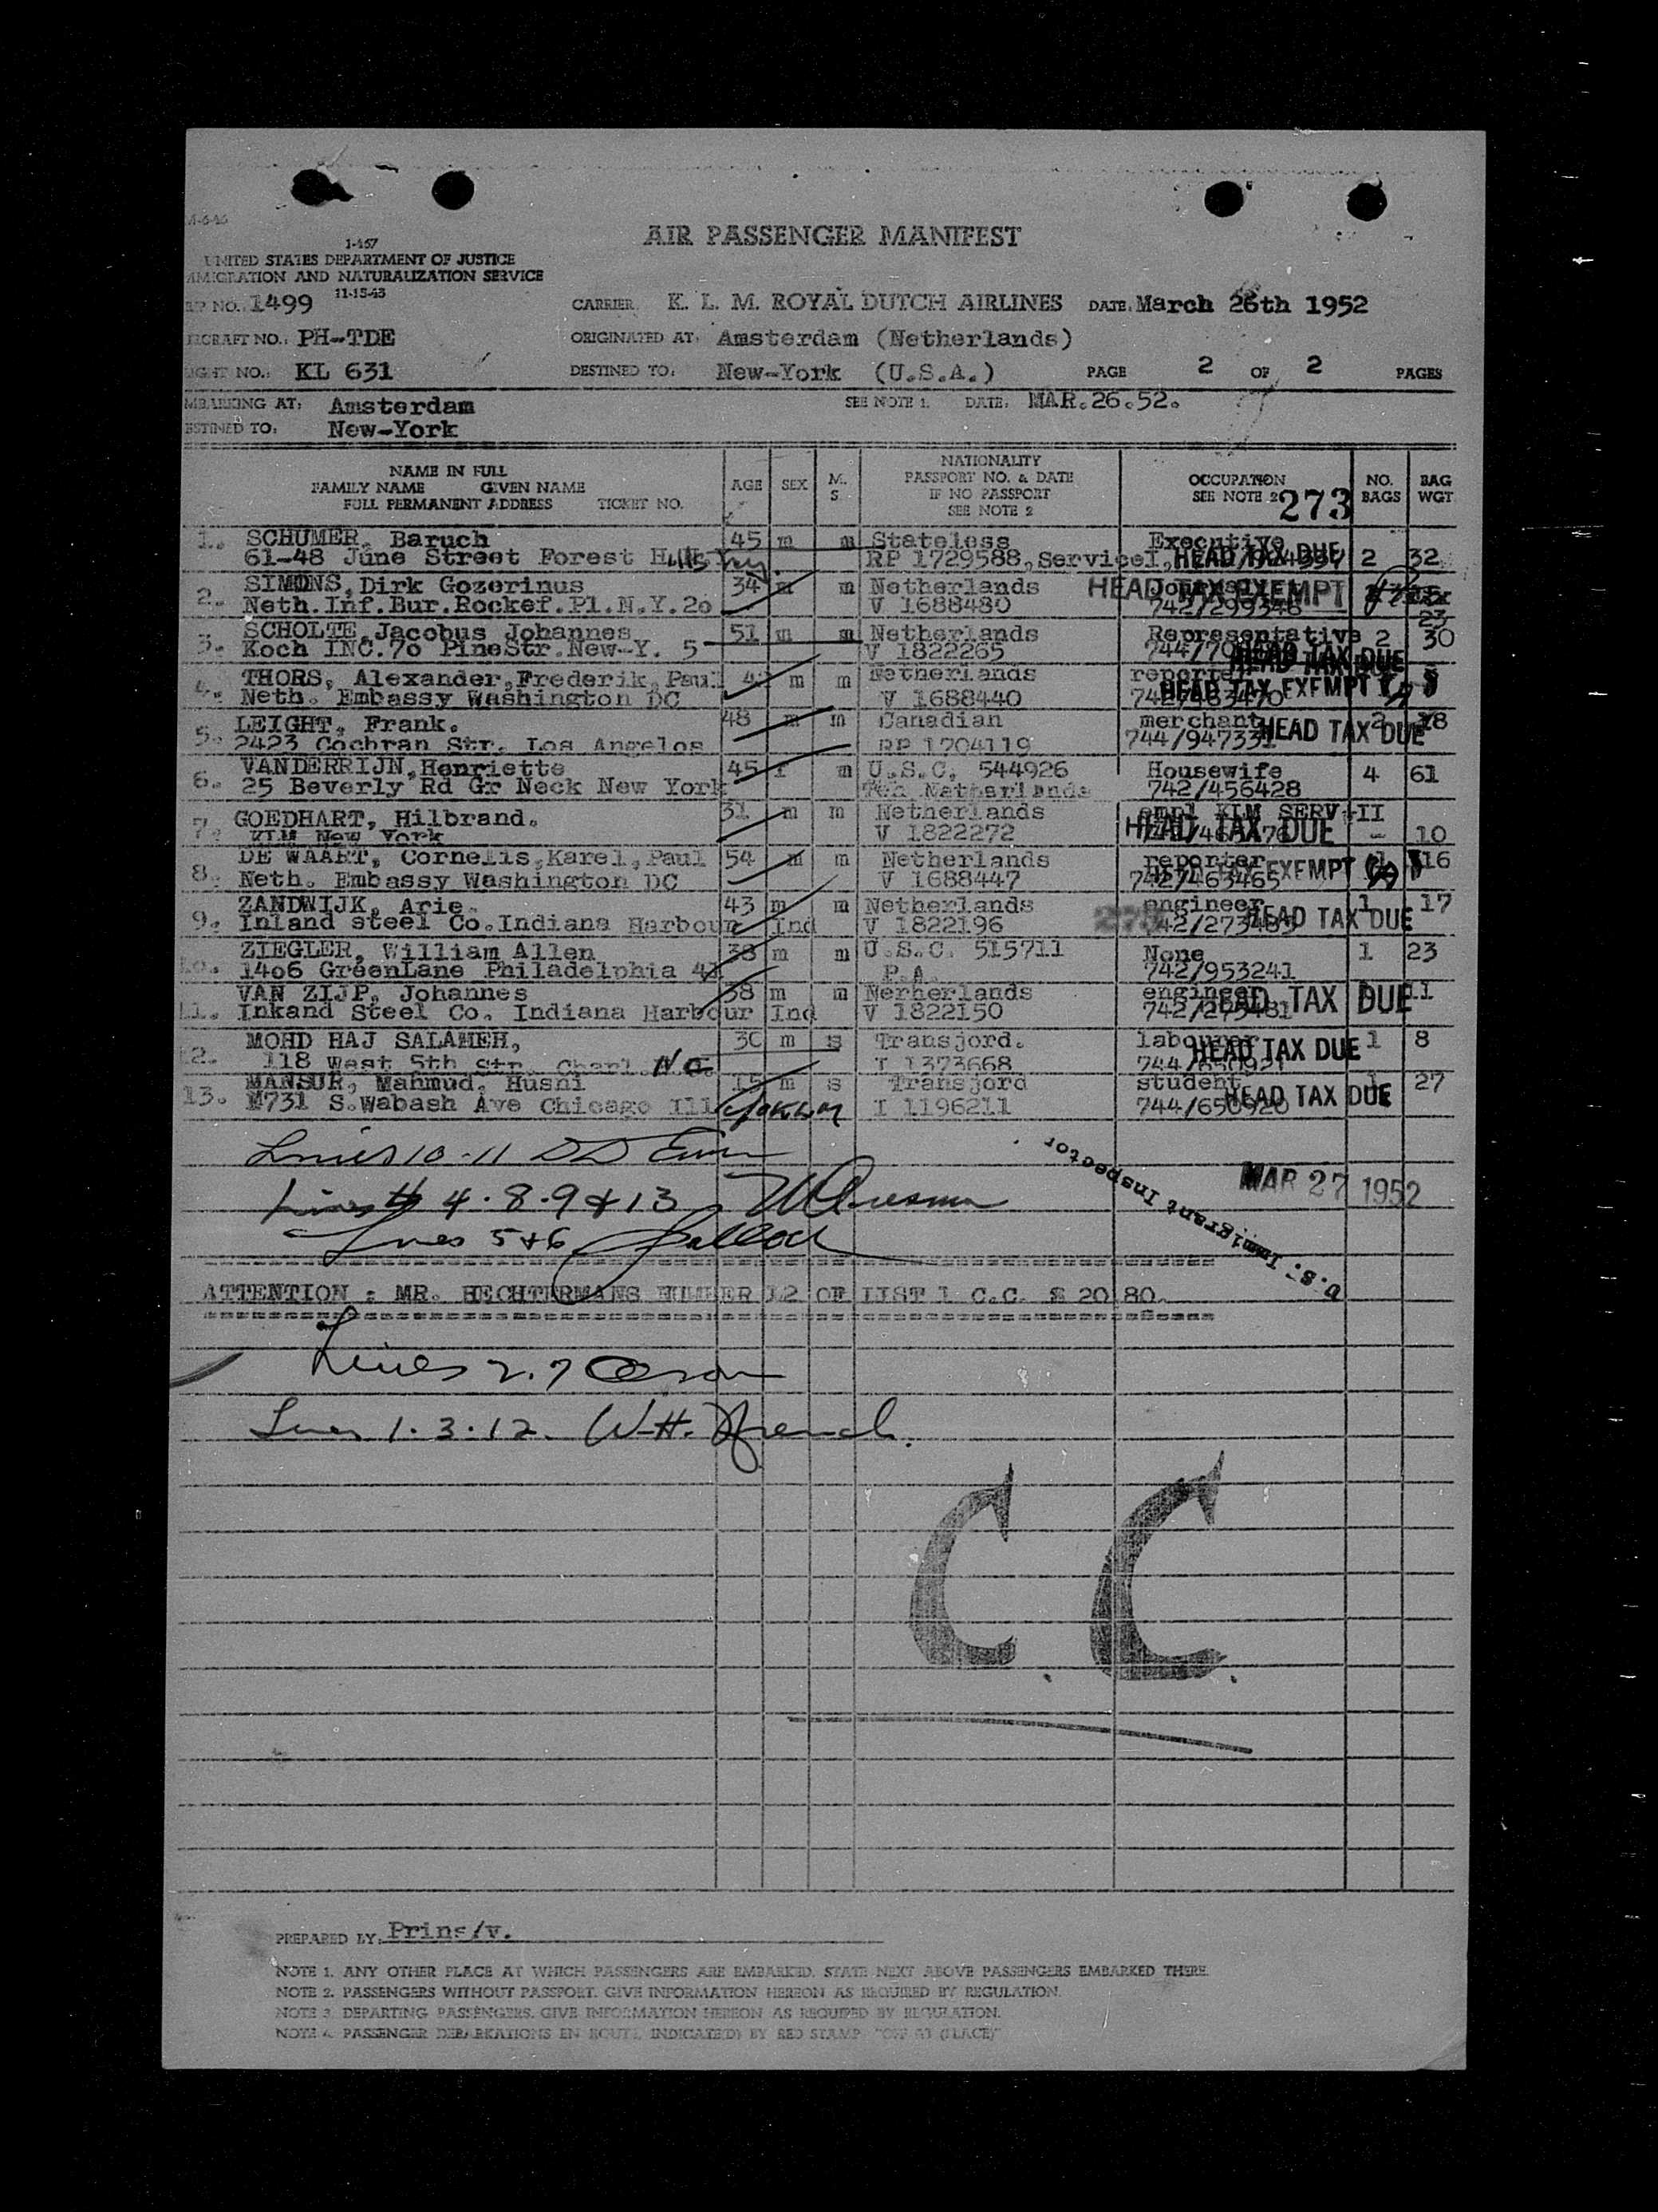 AIR PASSENGER MANIFEST
1-467
UNITED STATES DEPARTMENT OF JUSTICE
IMMIGRATION AND NATURALIZATION SERVICE
11-15-43
NO. 1499 CARRIER K. L. M. ROYAL DUTCH AIRLINES DATE: March 26th 1952
AIRCRAFT NO.: PH-TDE ORIGINATED AT: Amsterdam (Netherlands)
FLIGHT NO.: KL 631 DESTINED TO: New-York (U.S.A.) PAGE 2 OF 2 PAGES
EMBARKING AT: Amsterdam SEE NOTE 1. DATE: MAR.26.52.
DESTINED TO: New-York
NAME IN FULL
FAMILY NAME GIVEN NAME
FULL PERMANENT ADDRESS TICKET NO.
AGE SEX M. S.
NATIONALITY
PASSPORT NO. & DATE
IF NO PASSPORT
SEE NOTE 2
OCCUPATION
SEE NOTE 2 273
NO. BAGS BAG WGT
1. SCHUMER, Baruch 45 m m Stateless Executive
61-48 June Street Forest Hills N.Y. RP 1729588, Service I, HEAD TAX DUE 2 32
2. SIMONS, Dirk Gozerinus 34 m m Netherlands HEAD TAX EXEMPT
Neth.Inf.Bur.Rockef.Pl.N.Y.20 V 1688480 742/299348
3. SCHOLTE, Jacobus Johannes 51 m m Netherlands Representative 2 30
Koch INC.70 PineStr.New-Y. 5 V 1822265 HEAD TAX DUE
4. THORS, Alexander,Frederik,Paul m m Netherlands reporter
Neth. Embassy Washington DC V 1688440 742/463470 HEAD TAX EXEMPT
5. LEIGHT, Frank. 48 m m Canadian merchant 2 18
2423 Cochran Str. Los Angelos RP 1704119 744/947331 HEAD TAX DUE
6. VANDERRIJN,Henriette 45 f m U.S.C. 544926 Housewife 4 61
25 Beverly Rd Gr Neck New York Netherlands 742/456428
7. GOEDHART, Hilbrand. 31 m m Netherlands empl KLM SERV II
KLM New York V 1822272 HEAD TAX DUE - 10
8. DE WAART, Cornelis,Karel,Paul 54 m m Netherlands reporter 1 16
Neth. Embassy Washington DC V 1688447 742/463465 EXEMPT
9. ZANDWIJK, Arie. 43 m m Netherlands engineer 1 17
Inland steel Co.Indiana Harbour Ind V 1822196 HEAD TAX DUE
10. ZIEGLER, William Allen 38 m m U.S.C. 515711 None 1 23
1406 GreenLane Philadelphia 41 P.A. 742/953241
11. VAN ZIJP, Johannes 38 m m Nerherlands engineer
Inkand Steel Co. Indiana Harbour Ind V 1822150 742/273481 HEAD TAX DUE
12. MOHD HAJ SALAMEH, 30 m s Transjord. labourer 1 8
118 West 5th Str. Charl. N.C. T 1373668 744/650921 HEAD TAX DUE
13. MANSUR, Mahmud, Husni 15 m s Transjord student 1 27
M731 S.Wabash Ave Chicago Ill I 1196211 744/650920 HEAD TAX DUE
Lines 10-11
Lines # 4.8.9 & 13
Lines 5+6
U.S. Immigrant Inspector
MAR 27 1952
ATTENTION : MR. HECHTERMANS NUMBER 12 OF LIST 1 C.C. $ 20.80.
Lines 2.7 Olson
Lines 1.3.12. W.H. French.
C.C.
PREPARED BY: Prins/v.
NOTE 1. ANY OTHER PLACE AT WHICH PASSENGERS ARE EMBARKED, STATE NEXT ABOVE PASSENGERS EMBARKED THERE.
NOTE 2. PASSENGERS WITHOUT PASSPORT. GIVE INFORMATION HEREON AS REQUIRED BY REGULATION.
NOTE 3. DEPARTING PASSENGERS. GIVE INFORMATION HEREON AS REQUIRED BY REGULATION.
NOTE 4. PASSENGER DEBARKATIONS EN ROUTE INDICATE(D) BY RED STAMP "OFF AT (PLACE)"